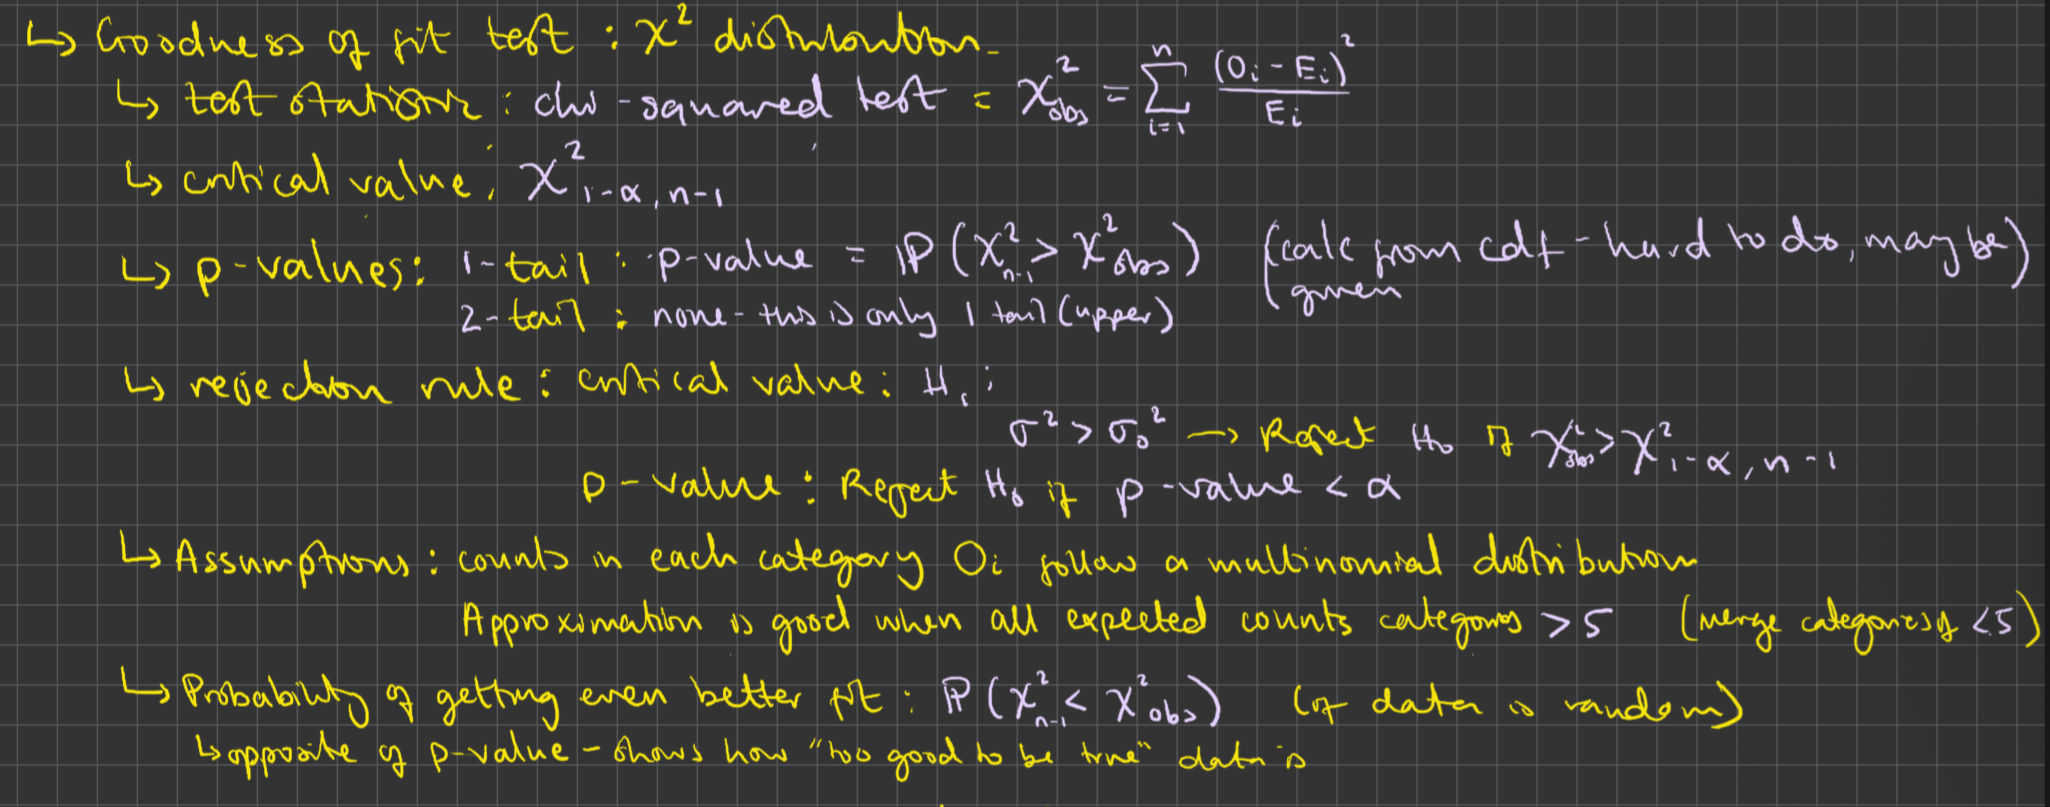 ↳ Goodness of fit test : χ² distribution
↳ test statistic : chi-squared test = χ²obs = Σ_{i=1}^{n} (Oi - Ei)² / Ei
↳ critical value : χ²1-α, n-1
↳ p-values : 1-tail : p-value = ℙ(χ²n-1 > χ²obs) (calc from cdf - hard to do, may be given)
2-tail : none - this is only 1 tail (upper)
↳ rejection rule : critical value : H1 :
σ² > σ0² → Reject H0 if χ²obs > χ²1-α, n-1
p-value : Reject H0 if p-value < α
↳ Assumptions : counts in each category Oi follow a multinomial distribution
Approximation is good when all expected counts categories > 5 (merge categories if < 5)
↳ Probability of getting even better fit : ℙ(χ²n-1 < χ²obs) (if data is random)
↳ opposite of p-value - shows how "too good to be true" data is